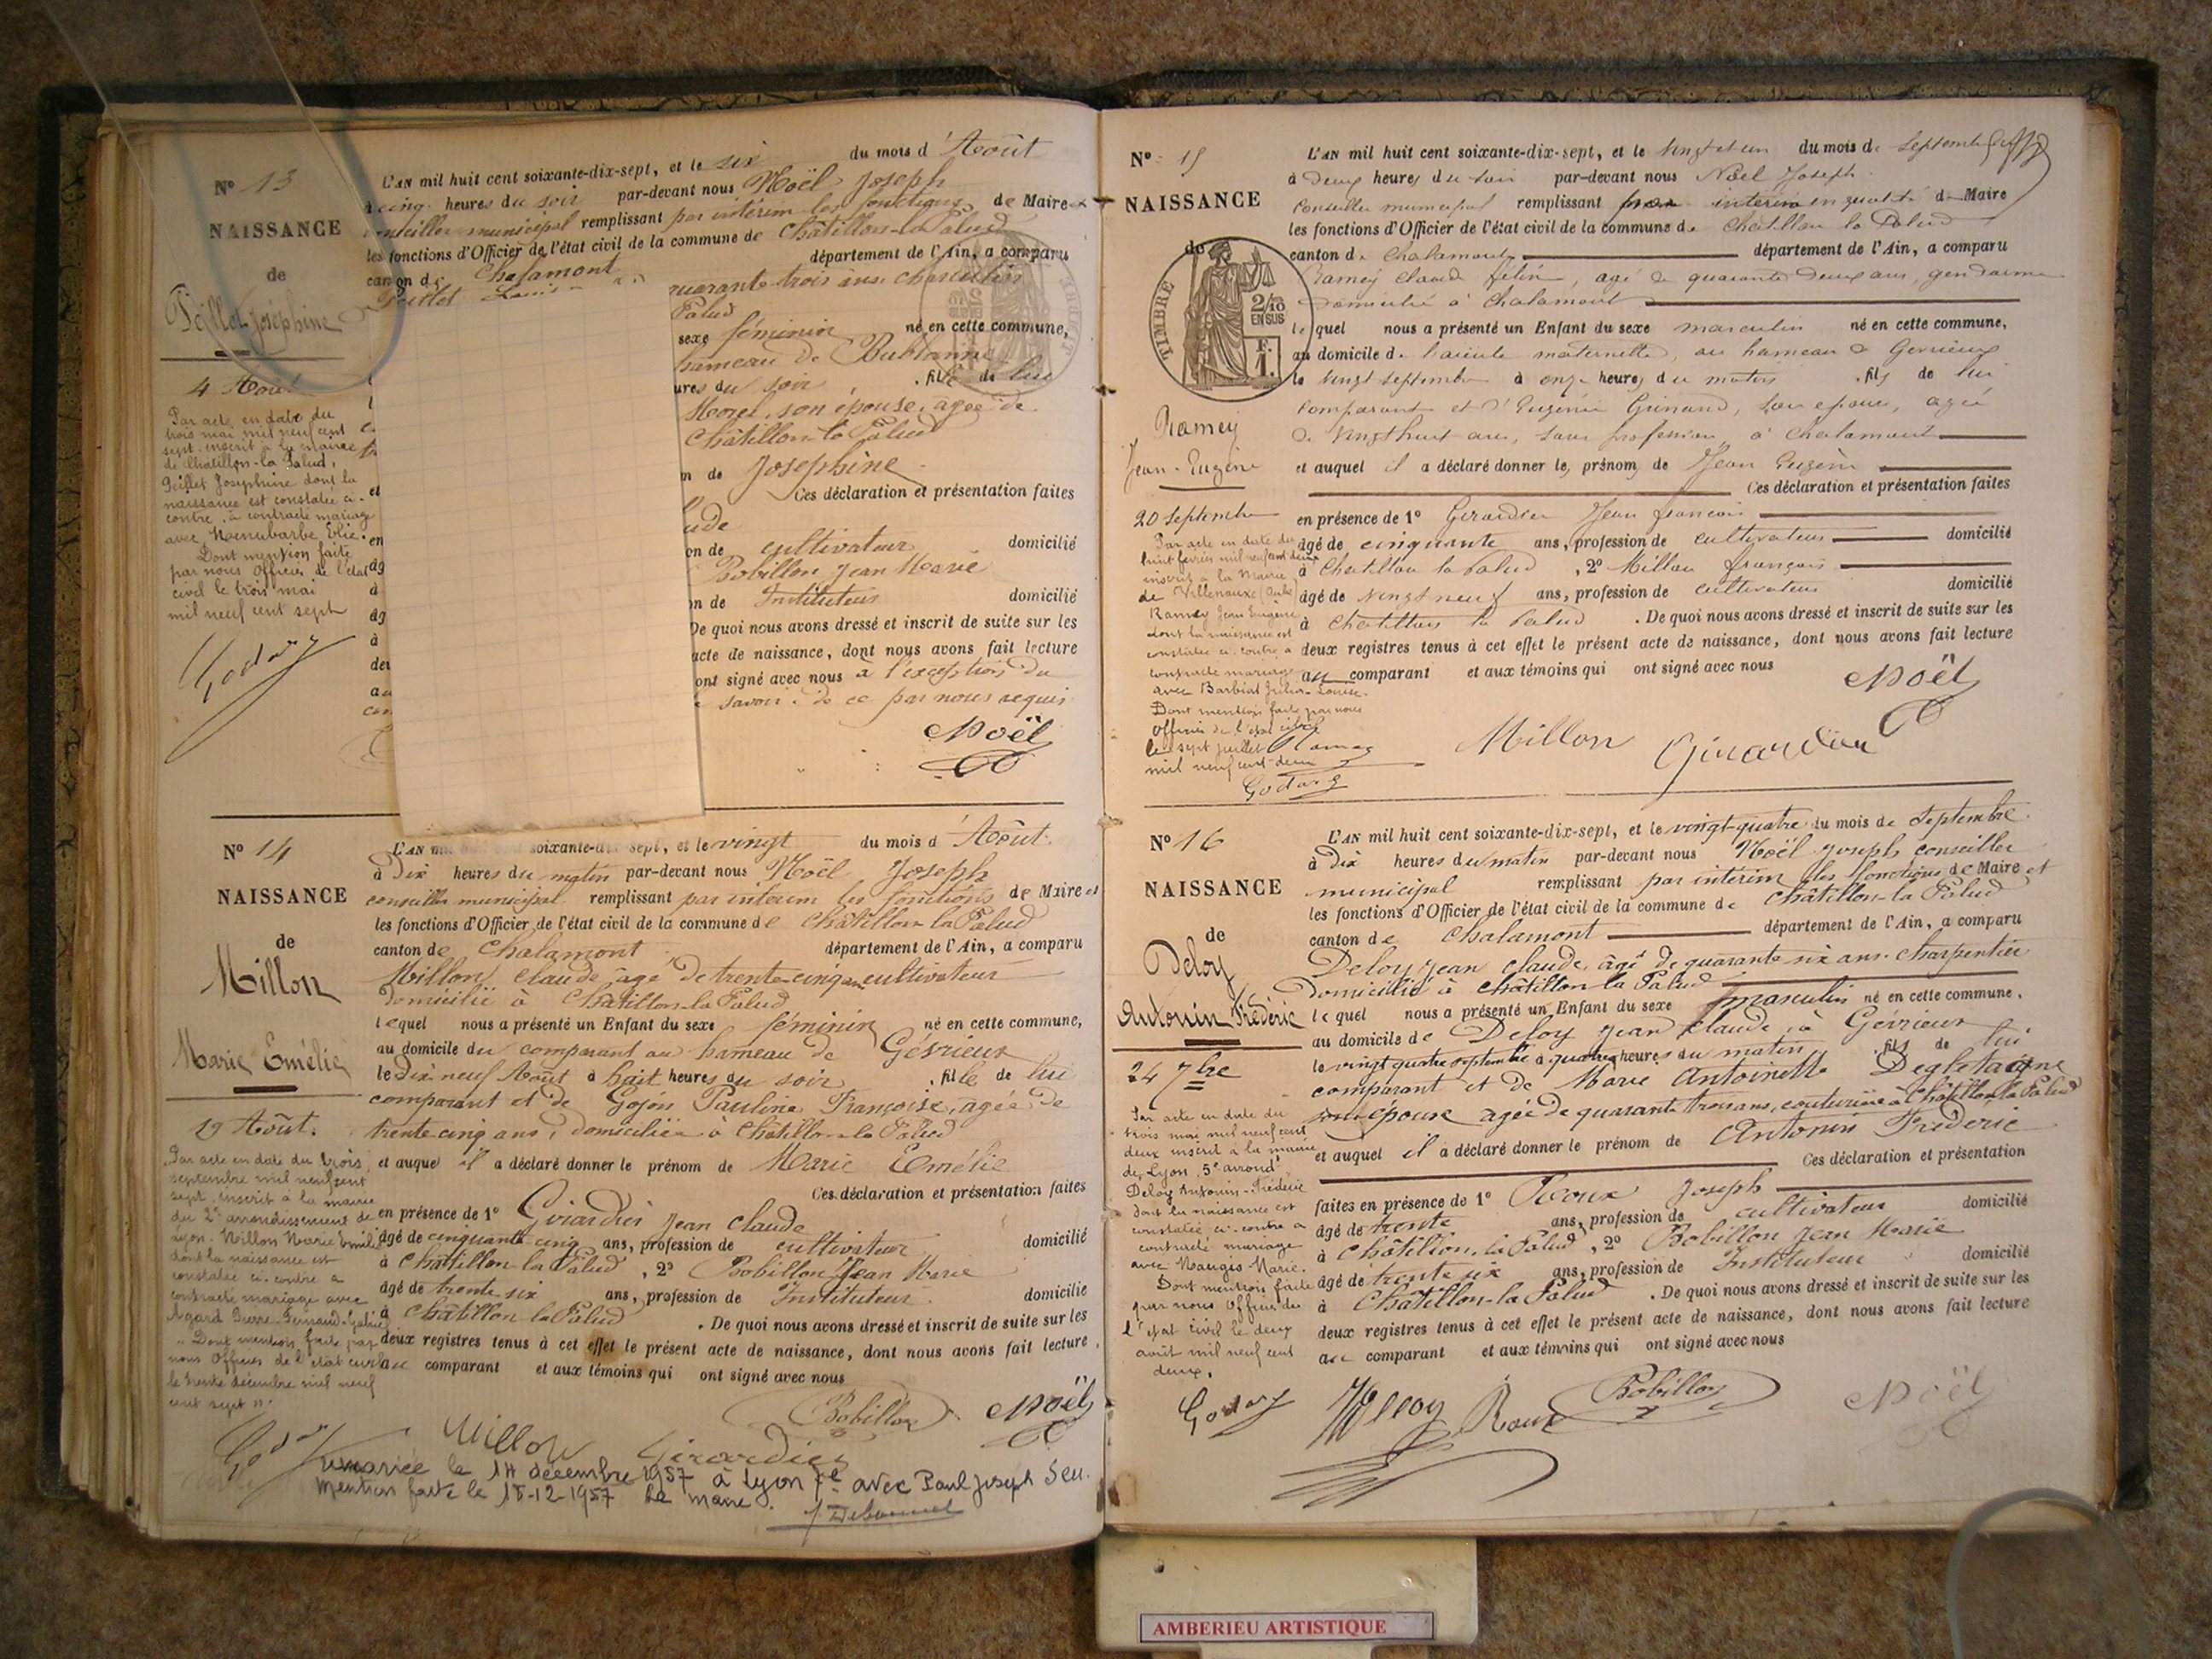 Nº 13
NAISSANCE
de
Peillet Joséphine
4 Août
Par acte en date du
trois mai mil neuf cent
sept inscrit à la mairie
de Chatillon-la Palud,
Peillet Joséphine dont la
naissance est constatée ci-
contre, a contracté mariage
avec Elie.
Dont mention faite
par nous Officier de l'état
civil le trois mai
mil neuf cent sept
Godary
L'AN mil huit cent soixante-dix-sept, et le six du mois d'Août
à cinq heures du soir par-devant nous Noël Joseph
conseiller municipal remplissant par intérim les fonctions de Maire
les fonctions d'Officier de l'état civil de la commune de Châtillon-la-Palud
canton de Chalamont département de l'Ain, a comparu
Peillet Louis quarante trois ans
Palud
sexe féminin né en cette commune,
hameau de Bublanne
ures du soir , fille de lui
Morel, son épouse, agée de
Châtillon la Palud
n de Joséphine
Ces déclaration et présentation faites
ude
on de cultivateur domicilié
Bobillon Jean Marie
on de Instituteur domicilié
De quoi nous avons dressé et inscrit de suite sur les
acte de naissance, dont nous avons fait lecture
ont signé avec nous à l'exception du
savoir de ce par nous requis
Noël
Nº 14
NAISSANCE
de
Millon
Marie Emélie
19 Août.
Par acte en date du trois
septembre mil neuf cent
sept inscrit à la mairie
du 2e arrondissement de
Lyon, Millon Marie Emélie
dont la naissance est
constatée ci-contre a
contracté mariage avec
Agard Pierre-Fernand-
Dont mention faite par
nous Officier de l'état civil
le trente décembre mil neuf
cent sept
Godary
L'AN soixante-dix sept, et le vingt du mois d'Août
à Dix heures du matin par-devant nous Noël Joseph
conseiller municipal remplissant par intérim les fonctions de Maire et
les fonctions d'Officier de l'état civil de la commune de Châtillon la Palud
canton de Chalamont département de l'Ain, a comparu
Millon claude âgé de trente-cinq ans cultivateur
domicilié à Châtillon-la Palud
lequel nous a présenté un Enfant du sexe féminin né en cette commune,
au domicile du comparant au hameau de Gévrieux
le Dix neuf Août à huit heures du soir , fille de lui
comparant et de Gojon Pauline Françoise, agée de
trente cinq ans, domiciliée à Châtillon-la Palud
et auquel il a déclaré donner le prénom de Marie Emélie
Ces déclaration et présentation faites
en présence de 1º Girardier Jean claude
âgé de cinquante-cinq ans, profession de cultivateur domicilié
à Châtillon-la Palud , 2º Bobillon Jean Marie
âgé de trente six ans, profession de Instituteur domicilié
à Châtillon la Palud . De quoi nous avons dressé et inscrit de suite sur les
deux registres tenus à cet effet le présent acte de naissance, dont nous avons fait lecture,
au comparant et aux témoins qui ont signé avec nous
Bobillon Noël
Millon Girardier
remariée le 14 décembre 1957 à Lyon avec Paul Joseph Seu.
Mention faite le 18-12-1957 Le maire.
Nº 15
NAISSANCE
de
TIMBRE
2/10
EN SUS
F.
1.
Ramey
Jean-Eugène
20 septembre
Par acte en date du
huit février mil neuf cent deux
inscrit a la Mairie
de Villenauxe (Aube)
Ramey Jean Eugène
dont la naissance est
constatée ci-contre a
contracté mariage
avec Barbiat Louise.
Dont mention faite par nous
Officier de l'état civil
le sept juillet
mil neuf cent deux
Godary
L'AN mil huit cent soixante-dix-sept, et le vingt et un du mois de Septembre
à deux heures du soir par-devant nous Noël Joseph
Conseiller municipal remplissant par intérim en qualité de Maire
les fonctions d'Officier de l'état civil de la commune de Chatillon la Palud
canton de Chalamont département de l'Ain, a comparu
Ramey Claude félix, agé de quarante deux ans, gendarme
domicilié à Chalamont
lequel nous a présenté un Enfant du sexe masculin né en cette commune,
au domicile de l'aieule maternelle, au hameau de Gevrieux
le vingt septembre à onze heures du matin , fils de lui
comparant et d'Eugénie Guinand, son épouse, agée
de vingt huit ans, sans profession à Chalamont
et auquel il a déclaré donner les prénoms de Jean Eugène
Ces déclaration et présentation faites
en présence de 1º Girardier Jean françois
âgé de cinquante ans, profession de cultivateur domicilié
à Chatillon la Palud , 2º Millon françois
âgé de vingt neuf ans, profession de cultivateur domicilié
à Chatillon la Palud . De quoi nous avons dressé et inscrit de suite sur les
deux registres tenus à cet effet le présent acte de naissance, dont nous avons fait lecture
au comparant et aux témoins qui ont signé avec nous
Noël
Ramey Millon Girardier
Nº 16
NAISSANCE
de
Deloy
Antonin Frédéric
24 7bre
Par acte en date du
trois mai mil neuf cent
deux inscrit à la mairie
de Lyon, 5e arrond
Deloy Antonin-Frédéric
dont la naissance est
constatée ci-contre a
contracté mariage
avec Mauges Marie.
Dont mention faite
par nous Officier de
l'état civil le deux
août mil neuf cent
deux.
Godary
L'AN mil huit cent soixante-dix-sept, et le vingt-quatre du mois de Septembre
à Dix heures du matin par-devant nous Noël Joseph conseiller
municipal remplissant par intérim les fonctions de Maire et
les fonctions d'Officier de l'état civil de la commune de Châtillon-la Palud
canton de Chalamont département de l'Ain, a comparu
Deloy Jean claude, âgé de quarante six ans. Charpentier
domicilié à Châtillon la Palud
lequel nous a présenté un Enfant du sexe masculin né en cette commune,
au domicile de Deloy Jean Claude, à Gévrieux
le vingt quatre septembre à quatre heures du matin , fils de lui
comparant et de Marie Antoinette Degletagne
son épouse agée de quarante trois ans, couturière à Châtillon la Palud
et auquel il a déclaré donner le prénom de Antonin Frédéric
Ces déclaration et présentation
faites en présence de 1º Roux Joseph
âgé de trente ans, profession de cultivateur domicilié
à Châtillon-la Palud , 2º Bobillon Jean Marie
âgé de trente six ans, profession de Instituteur domicilié
à Châtillon-la Palud . De quoi nous avons dressé et inscrit de suite sur les
deux registres tenus à cet effet le présent acte de naissance, dont nous avons fait lecture
au comparant et aux témoins qui ont signé avec nous
Deloy Roux Bobillon Noël
AMBERIEU ARTISTIQUE